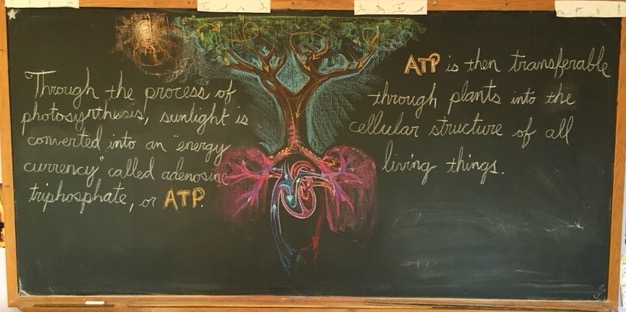 Through the process of
photosynthesis, sunlight is
converted into an "energy
currency" called adenosine
triphosphate, or ATP.
ATP is then transferable
through plants into the
cellular structure of all
living things.